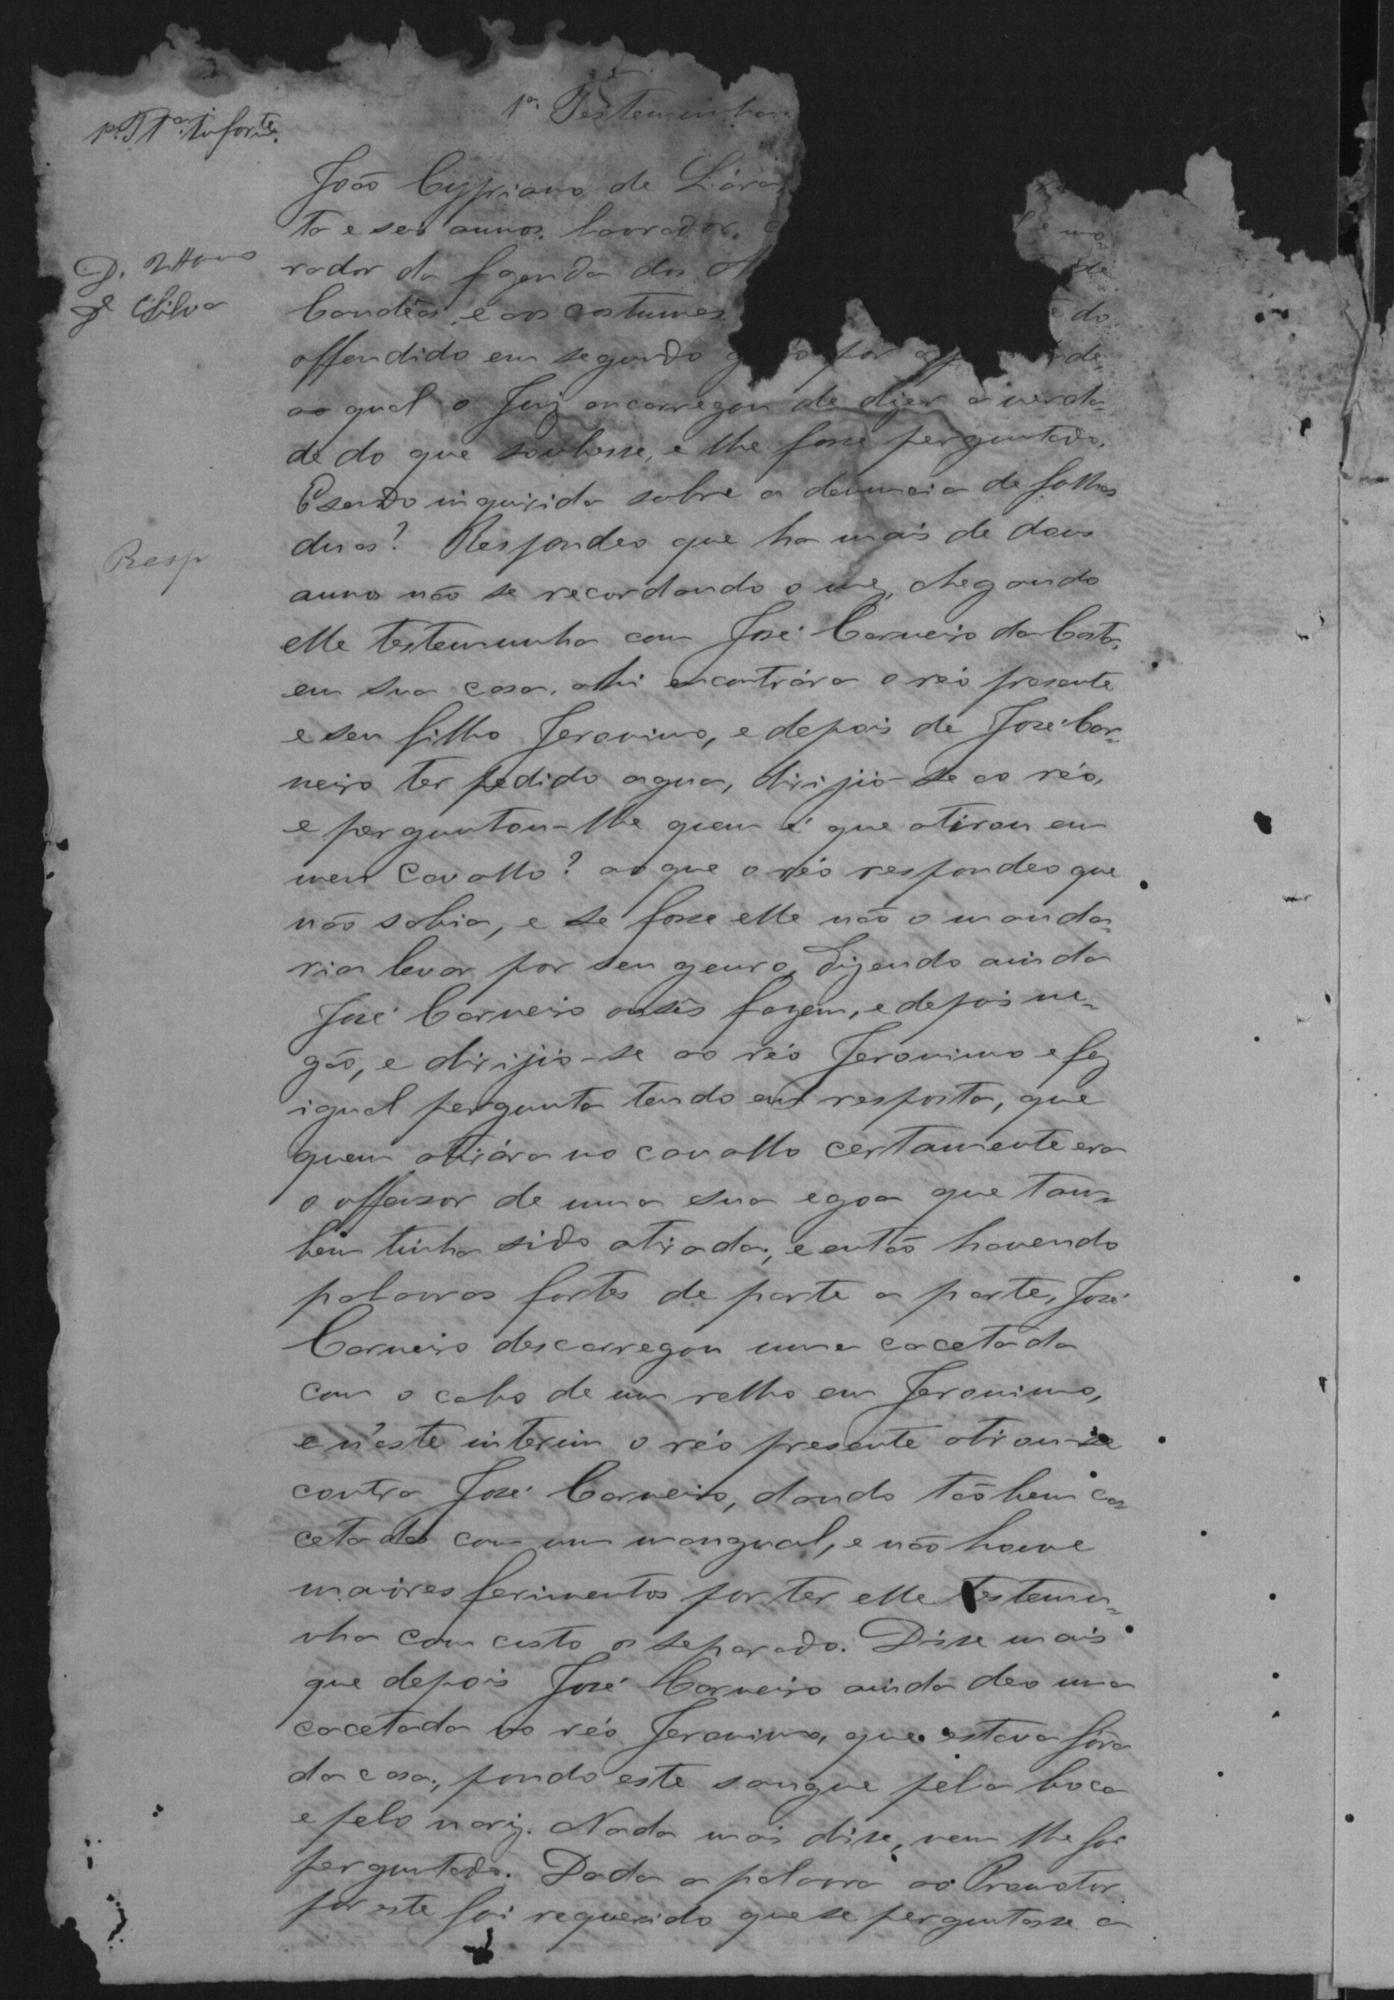 1ª Testemunha
1ª Tª Informte.
João Cypriano de
ta e seis annos, lavrador,
mo
D.
rador da fazenda dos
de
Silva
e aos costumes
do
offendido em segundo por
ao qual o Juiz encarregou de dizer a verda-
de do que soubesse, e lhe fosse perguntado.
E sendo inquirida sobre a denuncia de folhas
duas? Respondeo que ha mais de dous
Resp
anno não se recordando o mez, chegando
elle testemunha com José Carneiro da Costa,
em sua casa, ahi encontrára o réo presente
e seu filho Jeronimo, e depois de José Car-
neiro ter pedido agua, dirijio-se ao réo,
e perguntou-lhe quem é que atirou em
meu cavallo? ao que o réo respondeo que
não sabia, e se fosse elle não o manda-
ria levar por seu genro, dizendo ainda
José Carneiro assis fazem, e depois ne-
gão, e dirijio-se ao réo Jeronimo e fez
igual pergunta tendo em resposta, que
quem atirára no cavallo certamente era
o offensor de uma sua egoa que tam-
bem tinha sido atirada, e então havendo
palavras fortes de parte a parte, José
Carneiro descarregou uma cacetada
com o cabo de um relho em Jeronimo,
e n'este interim o réo presente atirou-se
contra José Carneiro, dando tãobem ca-
cetadas com um mangual, e não houve
maiores ferimentos por ter elle testemu-
nha com custo os separado. Disse mais
que depois José Carneiro ainda deo uma
cacetada no réo Jeronimo, que estava fóra
da casa, pondo este sangue pela boca
e pelo nariz. Nada mais disse, nem lhe foi
perguntado. Dada a palavra ao Promotor
por este foi requerido que se perguntasse a